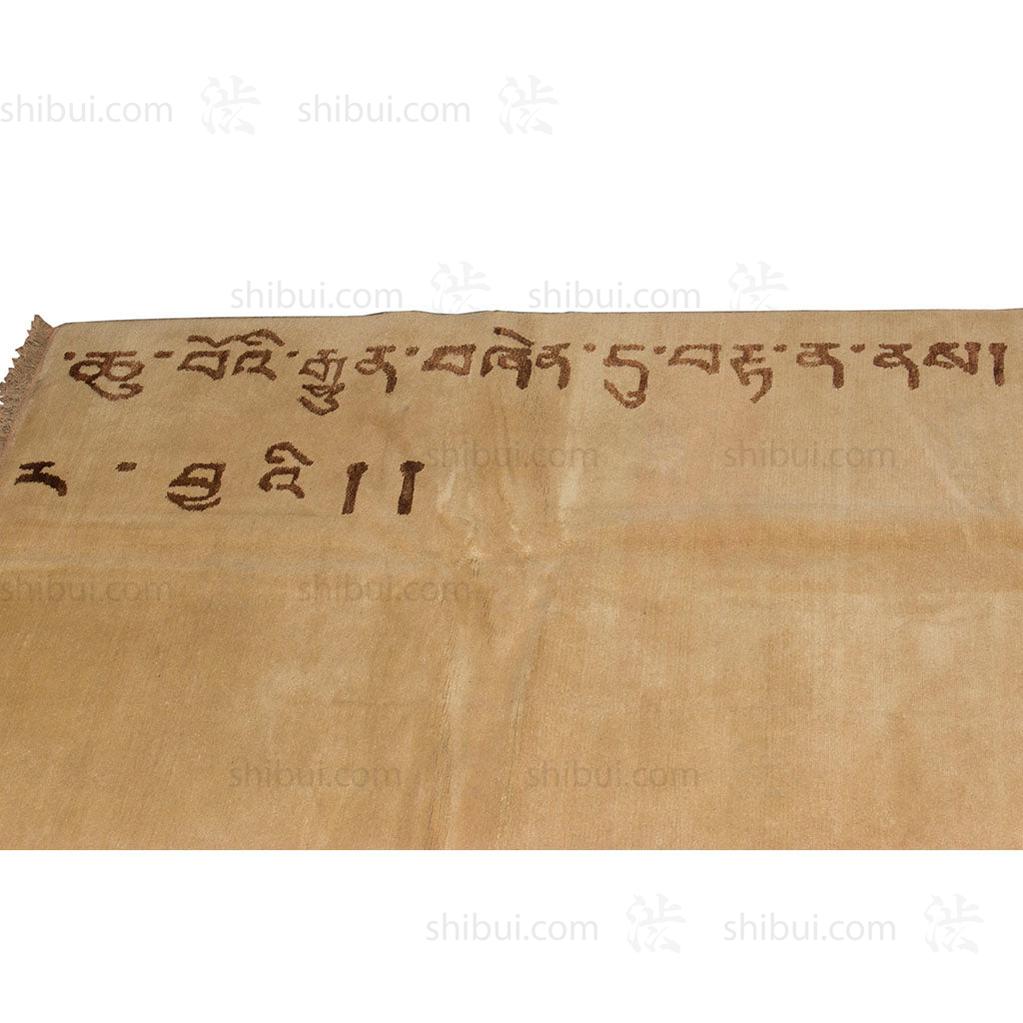 shibui.com 渋 shibui.com 渋
shibui.com 渋 shibui.com 渋
་ཆུ་བོའི་རྒྱུན་བཞིན་དུ་བརྟ་ན་ནས།
shibui.com shibui.com
ར་བྱའི།།
shibui.com shibui.com
shibui.com shibui.com
shibui.com 渋 shibui.com 渋